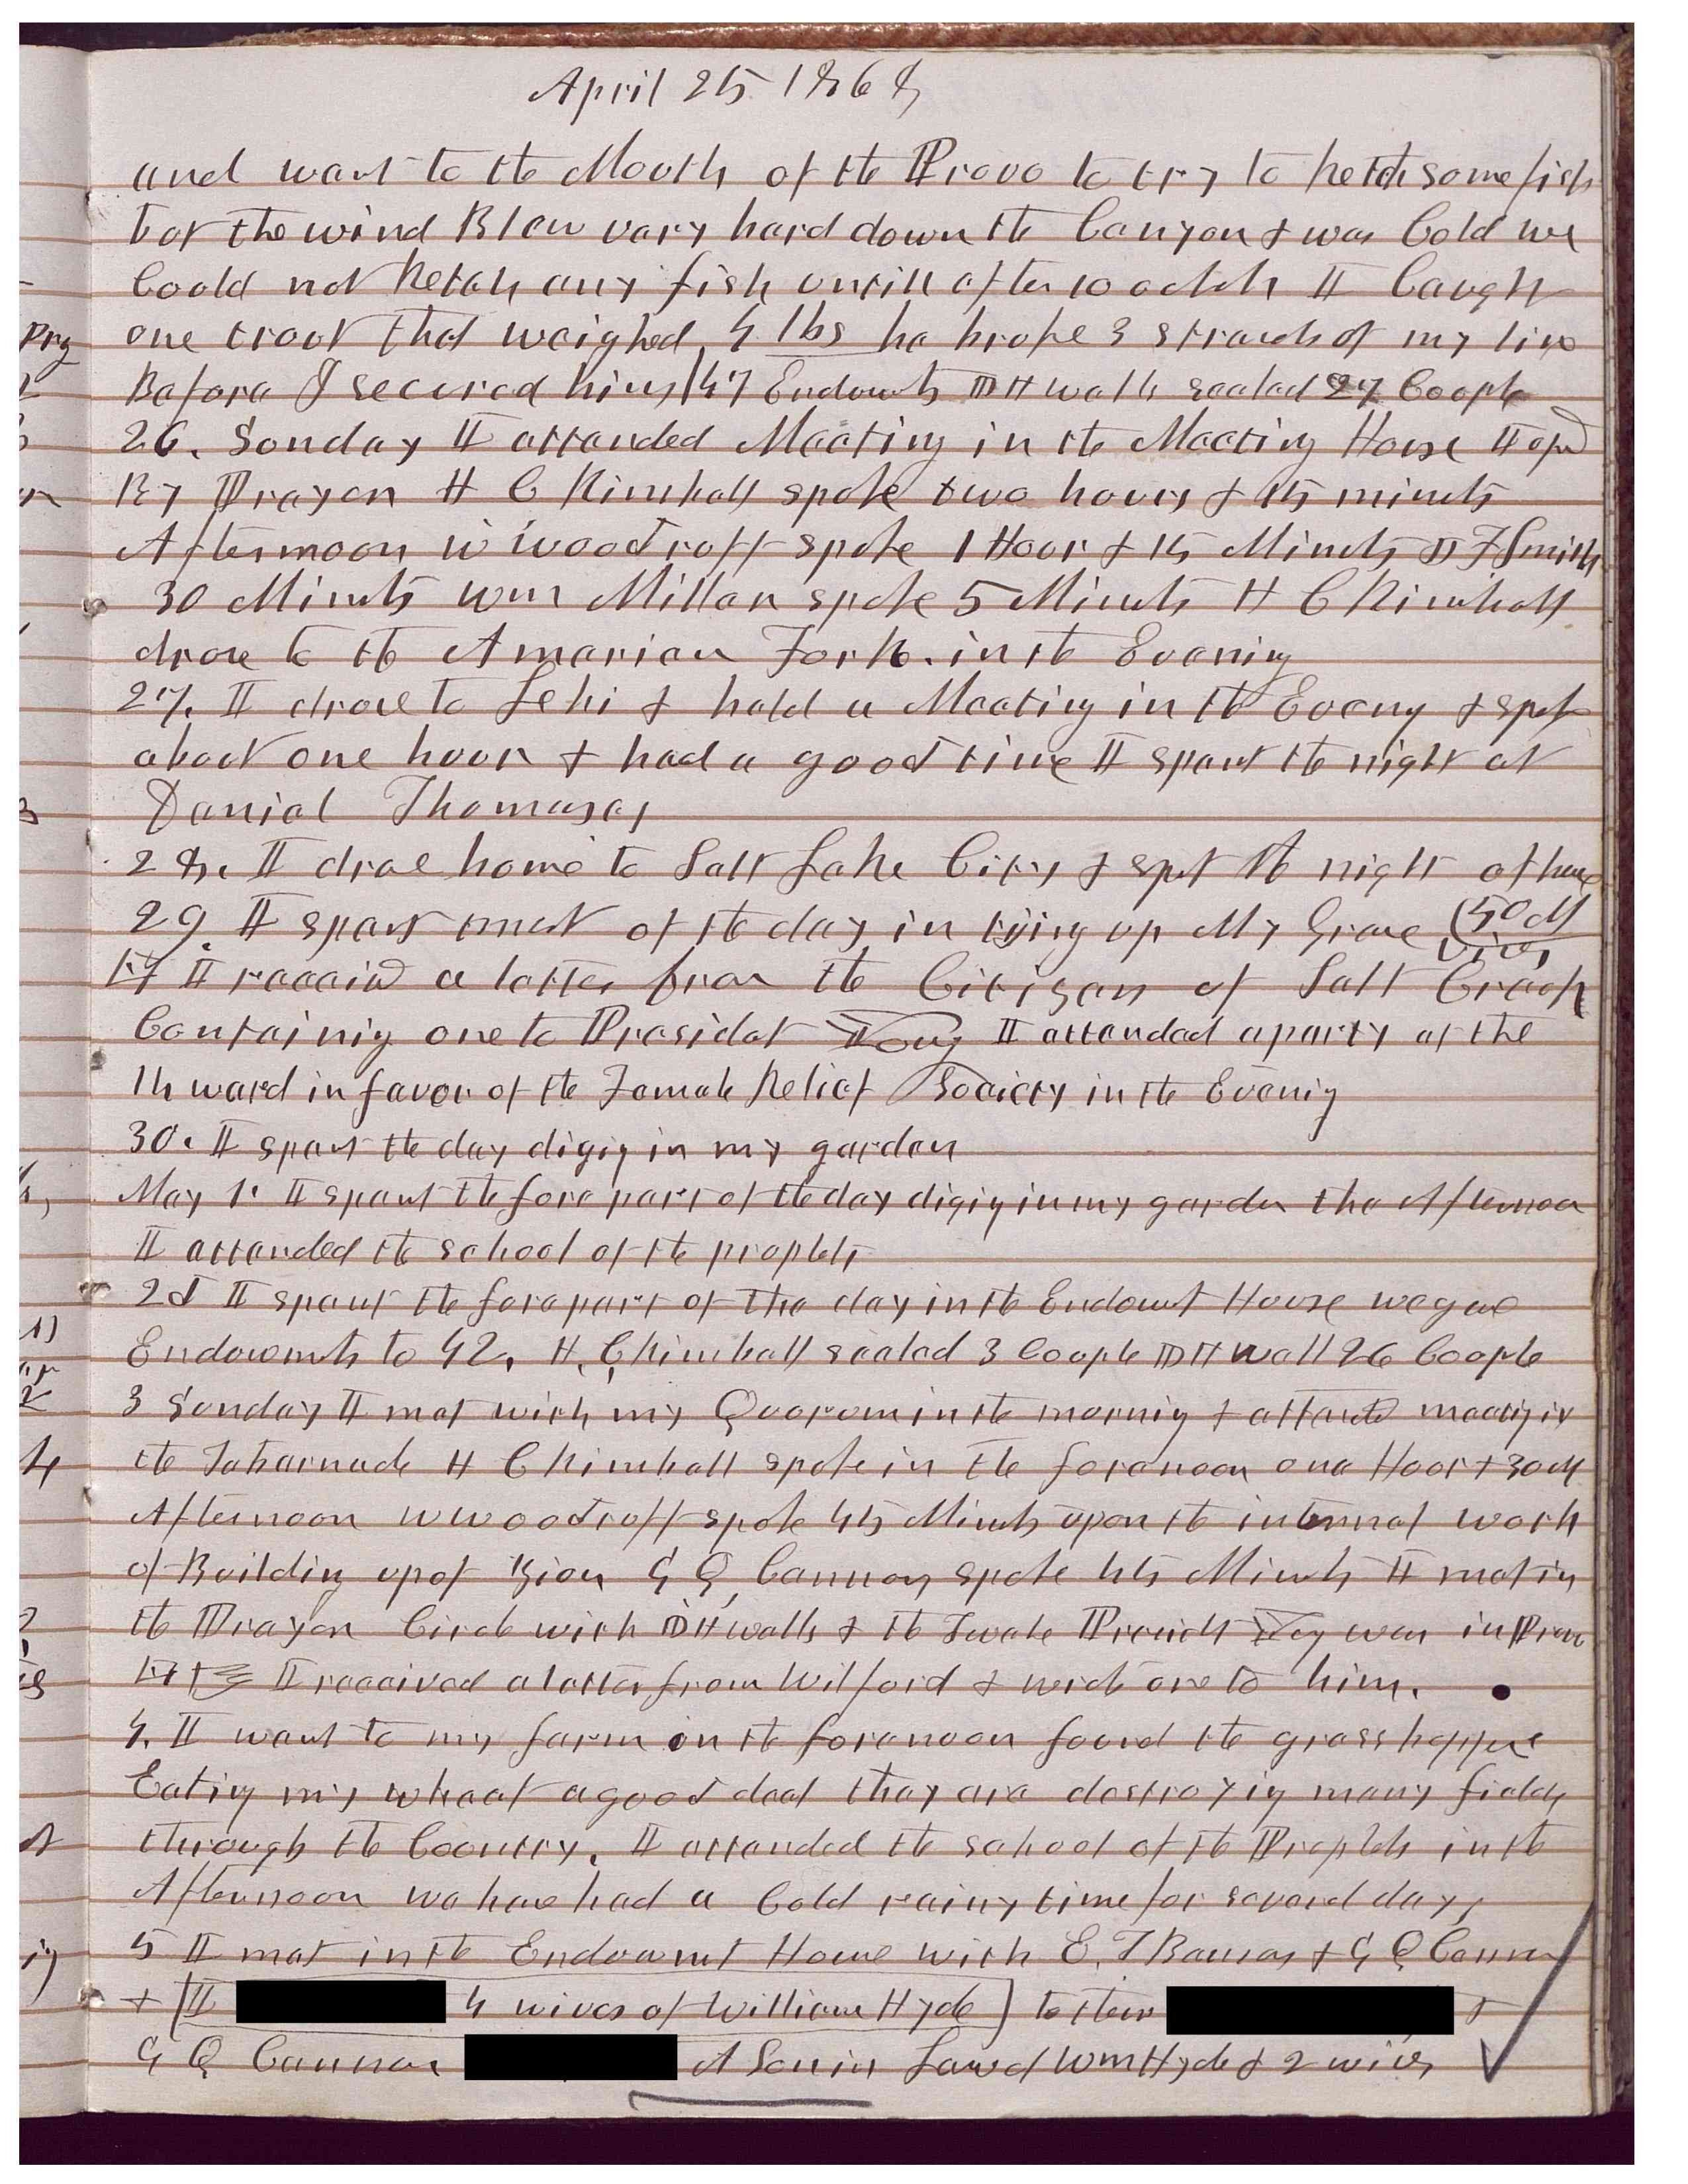 April 25 1868
and went to the Mouth of the Provo to try to ketch some fish
but the wind Blew very hard down the Canyon & was Cold we
Could not Ketch any fish untill after 10 oclok I Caught
one trout that weighed 4 lbs he broke 3 strands of my line
Before I secured him 47 Endowmts D H wells sealed 27 Couple
26. Sunday I attended Meeting in the Meeting House opd
By Prayer H C Kimball spoke two hours & 15 minuts
Afternoon W Woodruff spoke 1 Hour & 15 Minuts J F Smith
30 Minuts Wm Miller spoke 5 Minuts H C Kimball
drove to the American Fork. in the Evening
27. I drove to Lehi & held a Meeting in the Eveng & spok
about one hour & had a good time I spent the night at
Daniel Thomases
28. I drove home to Salt Lake City & spet the night at home
29 I spent most of the day in tying up My Grape (50 M
vines
I receivd a letter from the Citizens of Salt Creek
Containing one to Presidet Young I attended a party at the
14 ward in favor of the Female Relief Society in the Evenig
30. I spent the day digig in my garden
May 1. I spent the fore part of the day digig in my garden the Afternoon
I attended the school of the prophets
2d I spent the forepart of the day in the Endowmt House we gave
Endowmts to 42. H. C Kimball sealed 3 Couple D H Wells 26 Couple
3 Sunday I met with my Quorum in the morning & attended meetig in
the Tabernacle H C Kimball spoke in the forenoon one Hour & 30 M
Afternoon W Woodruff spoke 45 Minuts upon the internal work
of Building up of Zion G Q Cannon spoke 45 Minuts I met in
the Prayer Circle with D H Wells & the Twelve Presidt Young was in Provo
I received a letter from Wilford & wrote one to him.
4. I went to my farm in the forenoon found the grasshoppers
Eating my wheat a good deal they are destroyig many fields
through the Country. I attended the school of the Prophets in the
Afternoon we have had a Cold rainy time for several days
5 I met in the Endowmt House with E. T Benson & G Q Cannon
& I 4 wives of William Hyde to him &
G Q Cannon A Son in Law of Wm Hyde & 2 wives